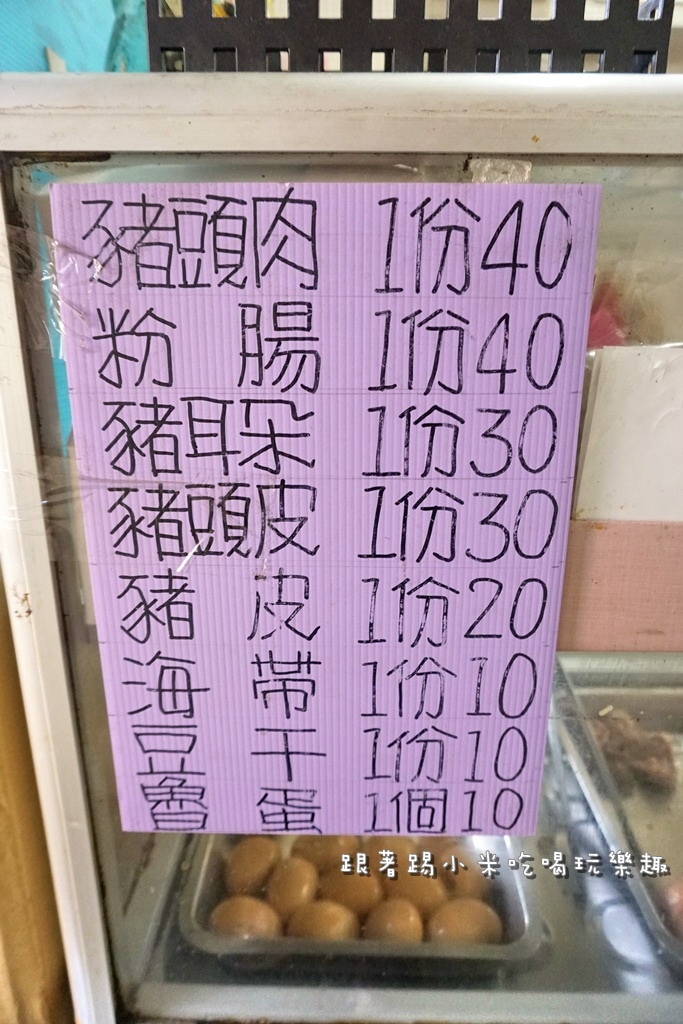 豬頭肉 1份40
粉腸 1份40
豬耳朵 1份30
豬頭皮 1份30
豬皮 1份20
海帶 1份10
豆干 1份10
魯蛋 1個10
跟著踢小米吃喝玩樂趣